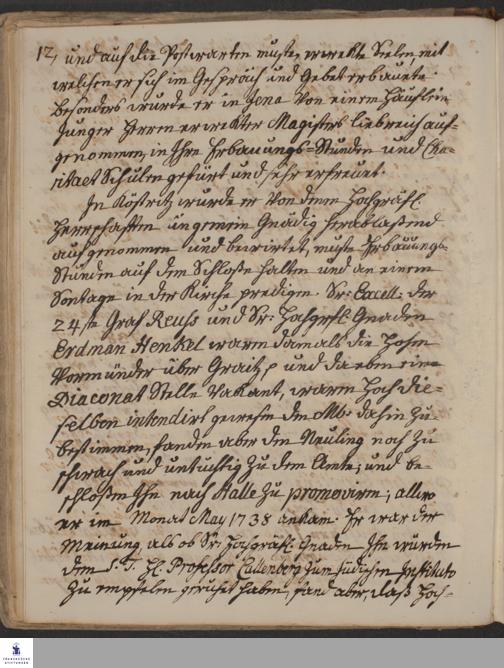 12, und auf die Postwarten muste, erwekte Seelen, mit
welchen er sich im Gespräch und Gebet erbauete.
besonders wurde er in Jena von einem Häuflein
junger Herren erwekter Magisters liebreich auf-
genommen, in Ihre Erbauungs-Stunden und Cha-
ritaet Schulen gefürt und sehr erfreuet.
In Köstritz wurde er von denen Hochgräfl.
Herrschafften ungemein Gnädig herablaßend
aufgenommen und bewirtet, muste Erbauungs-
Stunden auf dem Schloße halten und an einem
Sontage in der Kirche predigen. Sr: Excell: der
24,te Graf Reuss und Sr: Hochgräfl. Gnaden
Erdman Henkel waren damals die Hohen
Vormünder über Graitz, und da eben eine
Diaconat Stelle vakant, waren Hoch die-
selben intendirt gewesen den dahin zu
bestimmen, fanden aber den Neuling noch zu
schwach und untüchtig zu dem Amte, und be-
schloßen Ihn nach Halle zu promoviren; allwo
er im Monat May 1738 ankam. Er war der
Meinung, als ob Sr: Hochgräfl. Gnaden Ihn würden
dem S. T. H. Professor Callenberg zum Jüdischen Instituto
zu empfelen geruhet haben, fand aber, daß Hoch-
FRANCKESCHE STIFTUNGEN